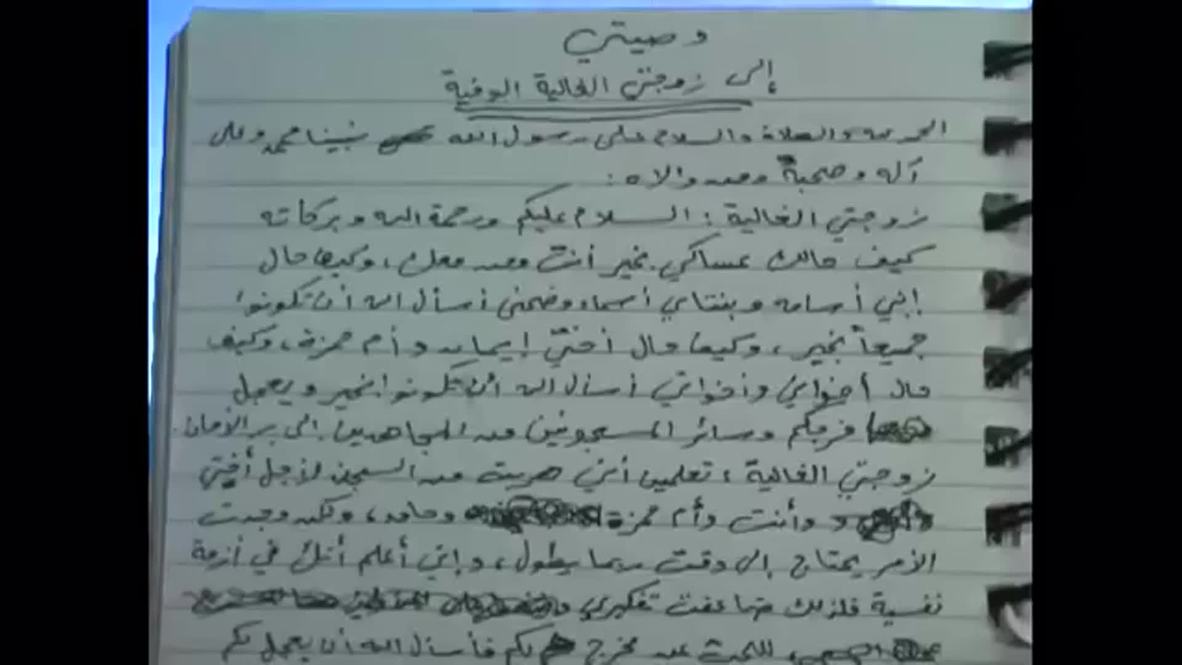 وصيتي
إلى زوجتي الغالية الوفية
الحمد لله والصلاة والسلام على رسول الله نبينا محمد وعلى
آله وصحبه ومن والاه :
زوجتي الغالية : السلام عليكم ورحمة الله وبركاته
كيف حالك عساكي بخير أنت ومن معك ، وكيف حال
إبني أسامه وبنتاي أسماء وضحى أسأل الله أن تكونوا
جميعاً بخير ، وكيف حال أختي إيمان وأم حمزة ، وكيف
حال أخواي وأخواتي أسأل الله أن تكونوا بخير ويعجل
فرجكم وسائر المسجونين من المجاهدين إلى بر الأمان .
زوجتي الغالية ، تعلمين أنني هربت من السجن لأجل أختي
وأنت وأم حمزة وحامد ، ولكن وجدت
الأمر يحتاج إلى وقت ربما يطول ، وإني أعلم أنك في أزمة
نفسية فلذلك ضاعفت تفكيري
للبحث عن مخرج لكم فأسأل الله أن يعجل لكم